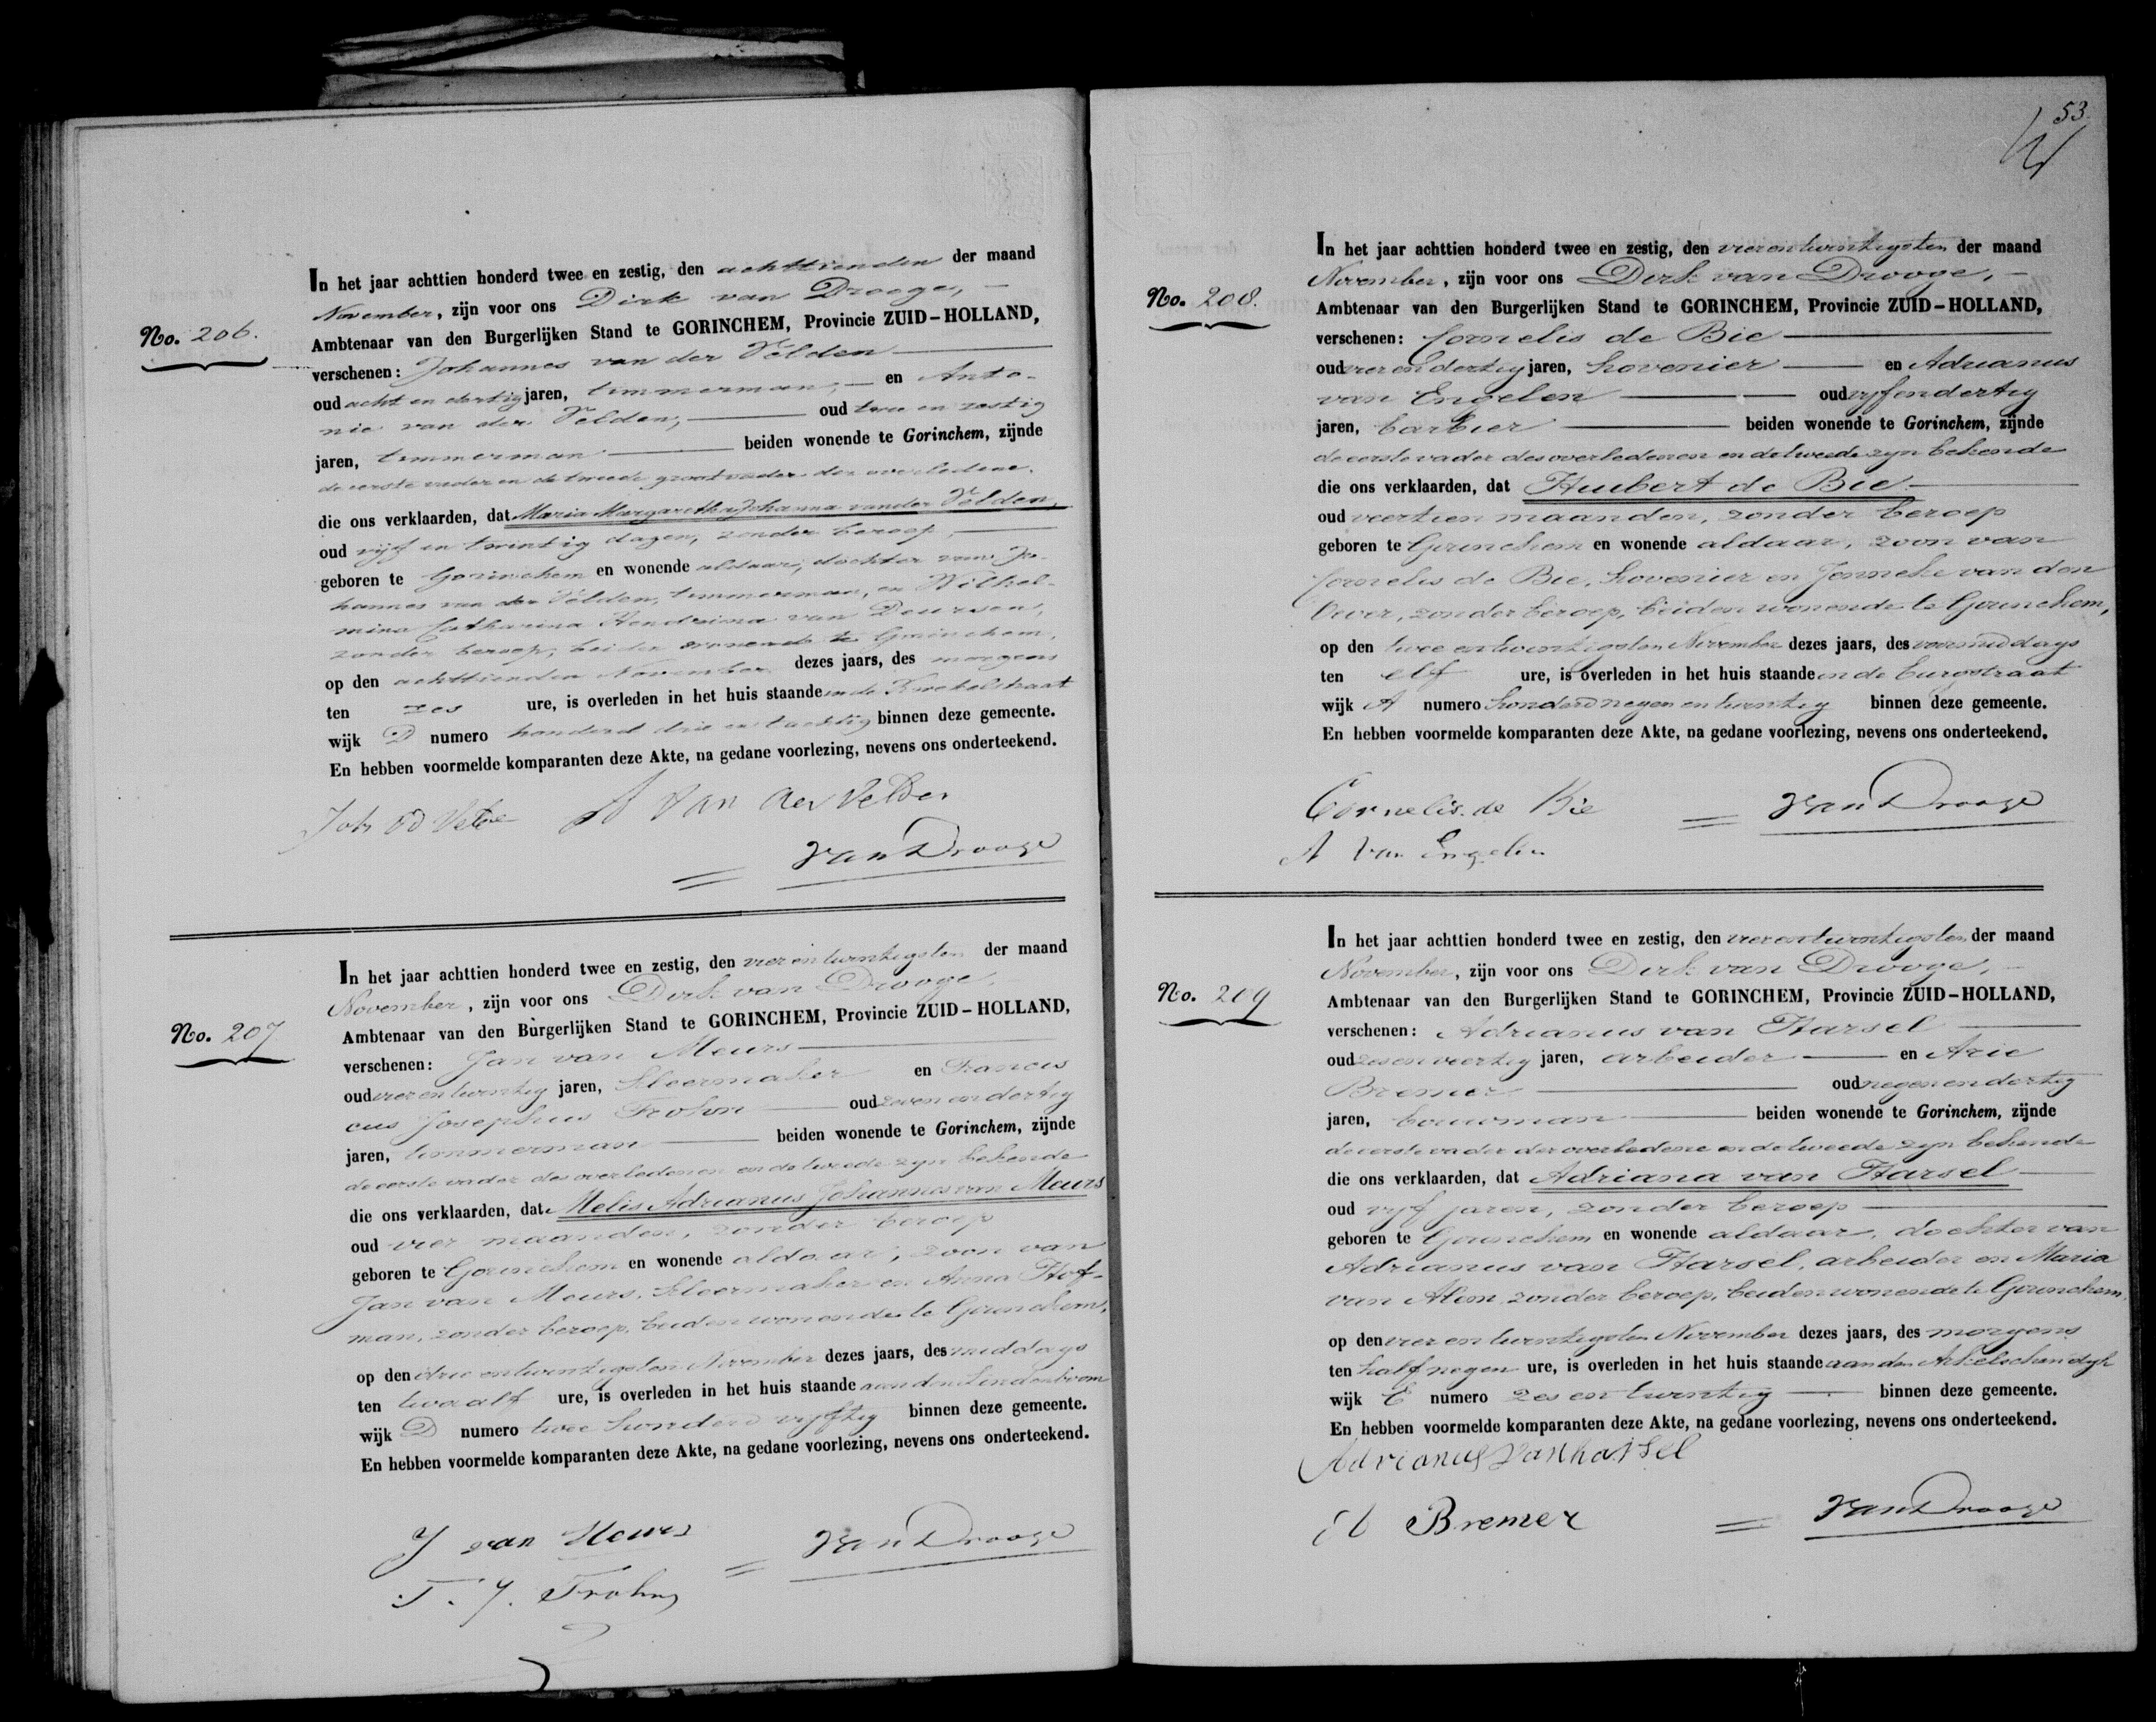 No. 206.
In het jaar achttien honderd twee en zestig, den achttienden der maand
November, zijn voor ons Dirk van Drooge, —
Ambtenaar van den Burgerlijken Stand te GORINCHEM, Provincie ZUID-HOLLAND,
verschenen: Johannes van der Velden —
oud acht en dertig jaren, timmerman, — en Anto-
nie van der Velden, — oud twee en zestig
jaren, timmerman — beiden wonende te Gorinchem, zijnde
de eerste vader en de tweede grootvader der overledene.
die ons verklaarden, dat Maria Margaretha Johanna van der Velden,
oud vijf en twintig dagen, zonder beroep, —
geboren te Gorinchem en wonende aldaar, dochter van Jo-
hannes van der Velden, timmerman, en Wilhel-
mina Catharina Hendrina van Deursen,
zonder beroep, beiden wonende te Gorinchem,
op den achttienden November dezes jaars, des morgens
ten zes ure, is overleden in het huis staande in de Kwekelstraat
wijk D numero honderd drie en tachtig binnen deze gemeente.
En hebben voormelde komparanten deze Akte, na gedane voorlezing, nevens ons onderteekend.
Joh vd Velde A van der Velden
van Drooge
No. 207
In het jaar achttien honderd twee en zestig, den vier en twintigsten der maand
November, zijn voor ons Dirk van Drooge, —
Ambtenaar van den Burgerlijken Stand te GORINCHEM, Provincie ZUID-HOLLAND,
verschenen: Jan van Meurs —
oud vier en twintig jaren, kleermaker en Francis
cus Josephus Frohn — oud zeven en dertig
jaren, timmerman — beiden wonende te Gorinchem, zijnde
de eerste vader des overledenen en de tweede zyn bekende
die ons verklaarden, dat Melis Adrianus Johannes van Meurs
oud vier maanden, zonder beroep
geboren te Gorinchem en wonende aldaar, zoon van
Jan van Meurs, kleermaker en Anna Hof-
man, zonder beroep, beiden wonende te Gorinchem,
op den drie en twintigsten November dezes jaars, des middags
ten twaalf ure, is overleden in het huis staande aan den Lindenboom
wijk D numero twee honderd vyftig binnen deze gemeente.
En hebben voormelde komparanten deze Akte, na gedane voorlezing, nevens ons onderteekend.
J van Meurs
van Drooge
F. J. Frohn
53.
No. 208.
In het jaar achttien honderd twee en zestig, den vier en twintigsten der maand
November, zijn voor ons Dirk van Drooge, —
Ambtenaar van den Burgerlijken Stand te GORINCHEM, Provincie ZUID-HOLLAND,
verschenen: Cornelis de Bie —
oud vier en dertig jaren, hovenier — en Adrianus
van Engelen — oud vyf en dertig
jaren, barbier — beiden wonende te Gorinchem, zijnde
de eerste vader des overledenen en de tweede zyn bekende
die ons verklaarden, dat Huibert de Bie —
oud veertien maanden, zonder beroep
geboren te Gorinchem en wonende aldaar, zoon van
Cornelis de Bie, hovenier en Jenneke van den
Oever, zonder beroep, beiden wonende te Gorinchem,
op den twee en twintigsten November dezes jaars, des voormiddags
ten elf ure, is overleden in het huis staande in de Burgstraat
wijk A numero honderd negen en twintig binnen deze gemeente.
En hebben voormelde komparanten deze Akte, na gedane voorlezing, nevens ons onderteekend.
Cornelis de Bie
van Drooge
A van Engelen
No. 209
In het jaar achttien honderd twee en zestig, den vier en twintigsten der maand
November, zijn voor ons Dirk van Drooge, —
Ambtenaar van den Burgerlijken Stand te GORINCHEM, Provincie ZUID-HOLLAND,
verschenen: Adrianus van Harsel —
oud zes en veertig jaren, arbeider — en Arie
Bremer — oud negen en dertig
jaren, bouwman — beiden wonende te Gorinchem, zijnde
de eerste vader der overledene en de tweede zyn bekende
die ons verklaarden, dat Adriana van Harsel —
oud vyf jaren, zonder beroep —
geboren te Gorinchem en wonende aldaar, dochter van
Adrianus van Harsel, arbeider en Maria
van Alem, zonder beroep, beiden wonende te Gorinchem,
op den vier en twintigsten November dezes jaars, des morgens
ten half negen ure, is overleden in het huis staande aan den Arkelschen dyk
wijk E numero zes en twintig — binnen deze gemeente.
En hebben voormelde komparanten deze Akte, na gedane voorlezing, nevens ons onderteekend.
Adrianus van harsel
A Bremer
van Drooge